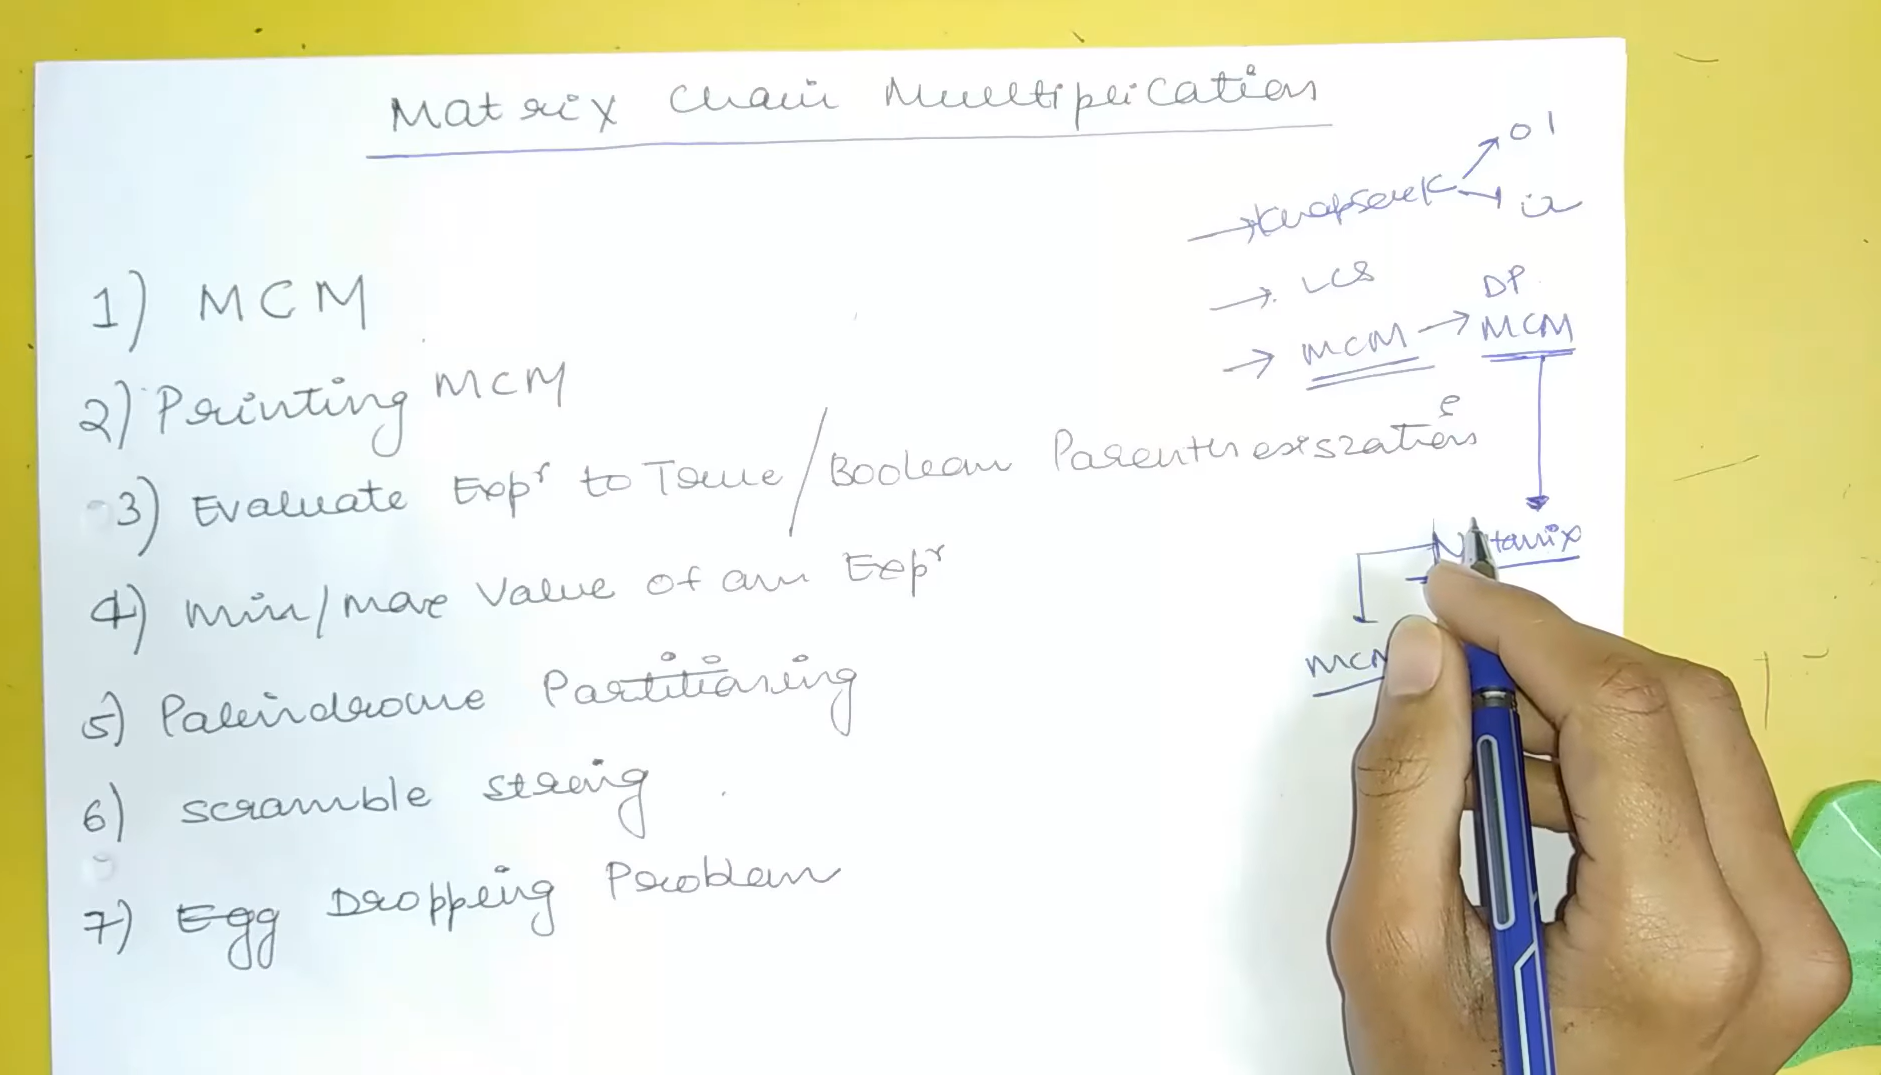 Matrix Chain Multiplication
1) MCM
2) Printing MCM
3) Evaluate Expr to True / Boolean Parenthesiszation
4) Min/Max Value of an Expr
5) Palindrome Partitioning
6) Scramble string
7) Egg Dropping Problem
→ Knapsack
01
→ LCS
→ MCM → MCM
DP
MCM